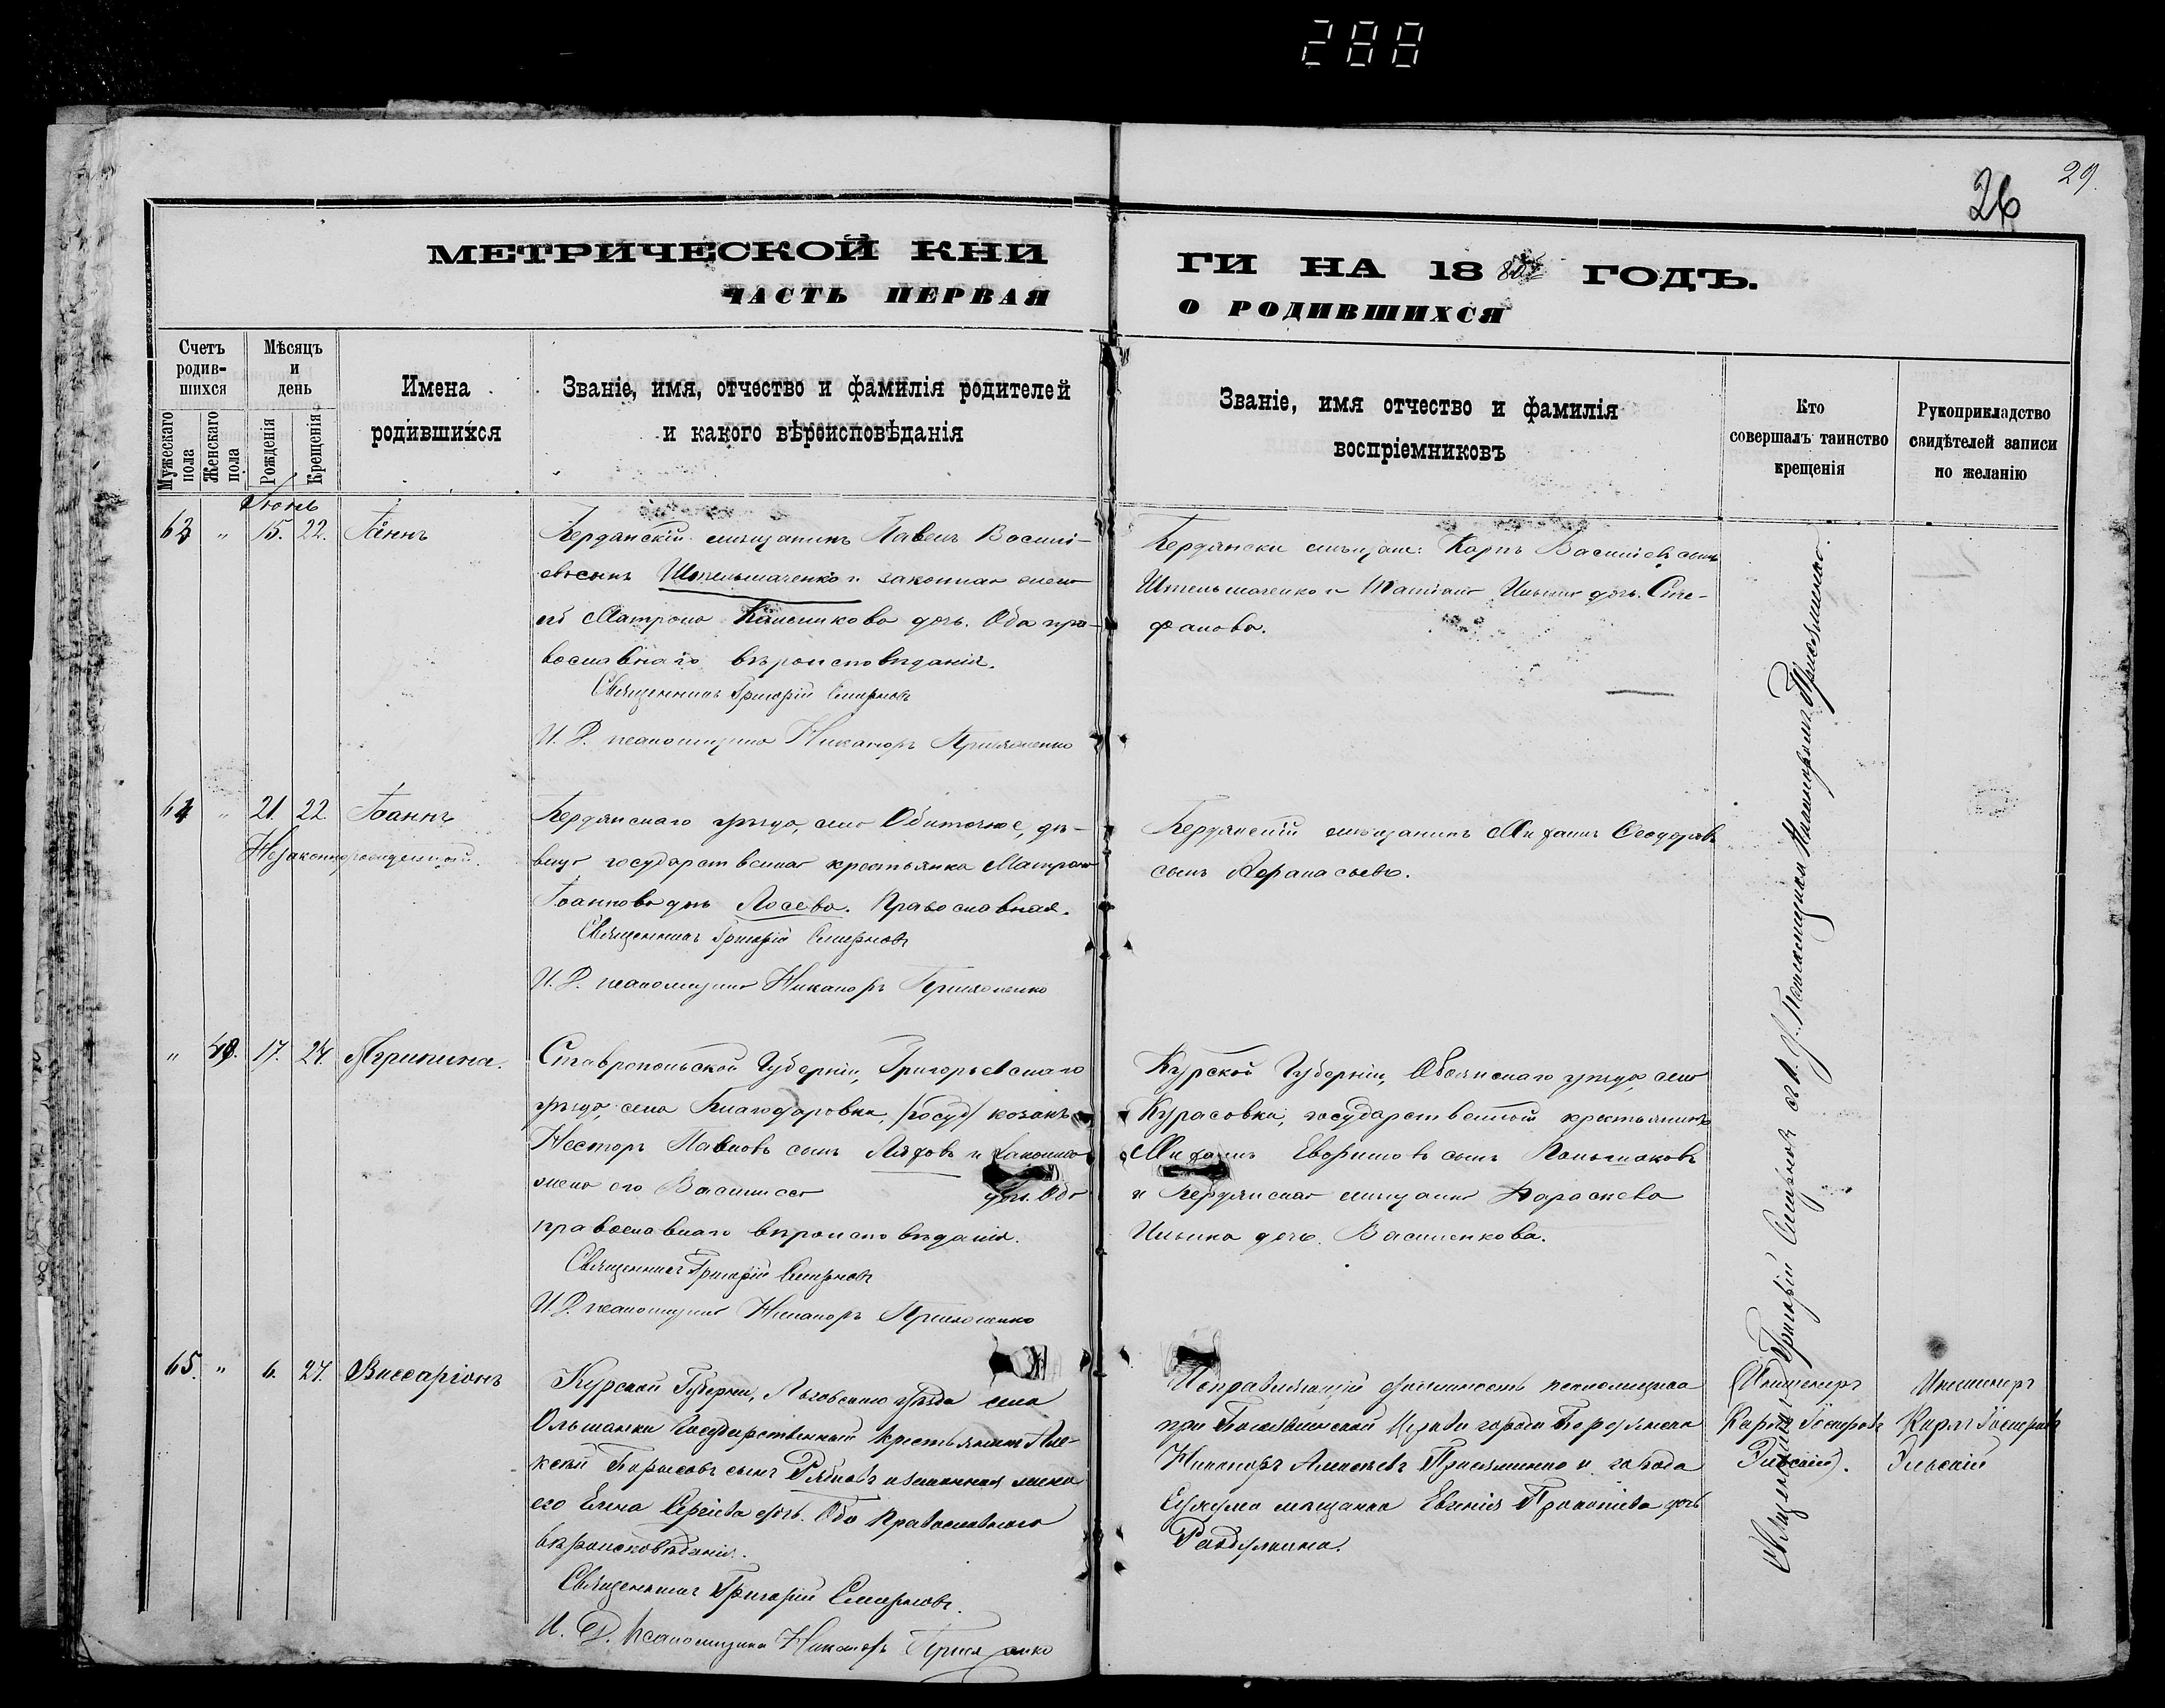 288
26
29.
МЕТРИЧЕСКОЙ КНИ
ГИ НА 18 ГОДЪ.
ЧАСТЬ ПЕРВАЯ
О РОДИВШИХСЯ
Счетъ родив-шихся
Мужескаго пола
Женскаго пола
Мѣсяцъ и день
Рожденія
Крещенія
Имена родившихся
Званіе, имя, отчество и фамилія родителей
и какого вѣроисповѣданія
Званіе, имя отчество и фамилія
воспріемниковъ
Кто
совершалъ таинство
крещенія
Рукоприкладство
свидѣтелей записи
по желанію
Іюнь
63 " 15. 22. Іоаннъ
Бердянскій мѣщанинъ Павелъ Василі-
евъ сынъ Штельмаченко и законная жена
его Матрона дочь. Оба пра-
вославнаго вѣроисповѣданія.
Священникъ Григорій Смирновъ
И. Д. псаломщика Никаноръ Присяженко
Бердянскі мѣщане: Карпъ Василіевъ сынъ
Штельмаченко и Татіана Ильина дочь Сте-
фанова.
64 " 21. 22 Іоаннъ
Незаконнорожденный.
Бердянскаго уѣзда, села Обиточное, дѣ-
вица государственная крестьянка Матрона
Іоаннова дочь Лосева. Православная.
Священникъ Григорій Смирновъ
И. Д. псаломщика Никаноръ Присяженко
Бердянскій мѣщанинъ Михаилъ Ѳеодоровъ
сынъ Аѳанасьевъ.
" 48. 17. 24. Агрипина.
Ставропольской Губерніи, Григорьевскаго
уѣзда, села Благодаровки, /госуд/ козакъ
Несторъ Павловъ сынъ Ляховъ и законная
жена его Василиса дочь. Оба
православнаго вѣроисповѣданія.
Священникъ Григорій Смирновъ
И. Д. псаломщика Никаноръ Присяженко
Курской Губерніи, Обоянскаго уѣзда села
Курасовки, государственный крестьянинъ
Михаилъ сынъ
и Бердянская мѣщанка Параскева
Ильина дочь Василенкова.
65. " 6. 24. Виссаріонъ
Курской Губерніи, Льговскаго уѣзда села
Ольшанки Государственный крестьянинъ Але-
ксѣй Борисовъ сынъ и законная жена
его Елена Сергіева дочь. Оба Православнаго
вѣроисповѣданія.
Священникъ Григорій Смирновъ.
И. Д. Псаломщика Никаноръ Присяженко
Исправляющій должность псаломщика
при церкви города Бердянска
Никаноръ Алексѣевъ Присяженко и города
мѣщанка Евгенія Прокопіева дочь
Священникъ Григорій Смирновъ съ И. Д. Псаломщика Никаноромъ Присяженко.
Инженеръ
Карлъ
Инженеръ
Карлъ